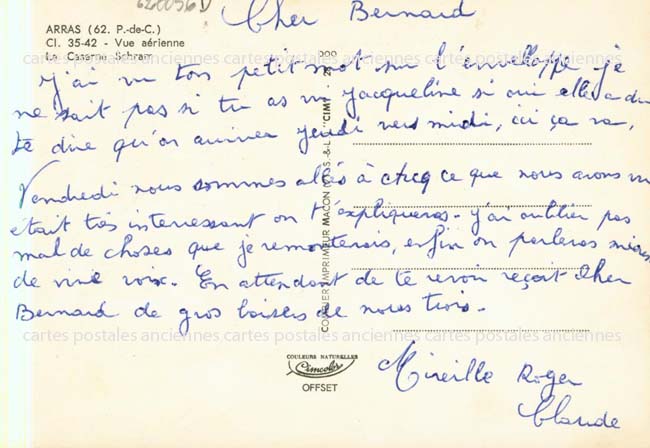 620056D
Cher Bernard
ARRAS (62. P.-de-C.)
Cl. 35-42 - Vue aérienne
La Caserne Schram
cartes postales anciennes cartes postales anciennes cartes postales anciennes
J'ai vu ton petit mot sur l'enveloppe je
ne sait pas si tu as vu Jacqueline si oui elle a du
te dire qu'on arrivera jeudi vers midi, ici ça va,
Vendredi nous sommes allés à ce que nous avons vu
était très interressant on t'expliqueras - j'ai oublier pas
mal de choses que je remonterais, enfin on parleras mieux
de vive voix. En attendant de te revoir reçoit Cher
Bernard de gros baisers de nous trois.
cartes postales anciennes cartes postales anciennes cartes postales anciennes
COMBIER IMPRIMEUR MACON (S.-&-L.) "CIM"
COULEURS NATURELLES
Cimcolor
OFFSET
Mireille Roger
Claude